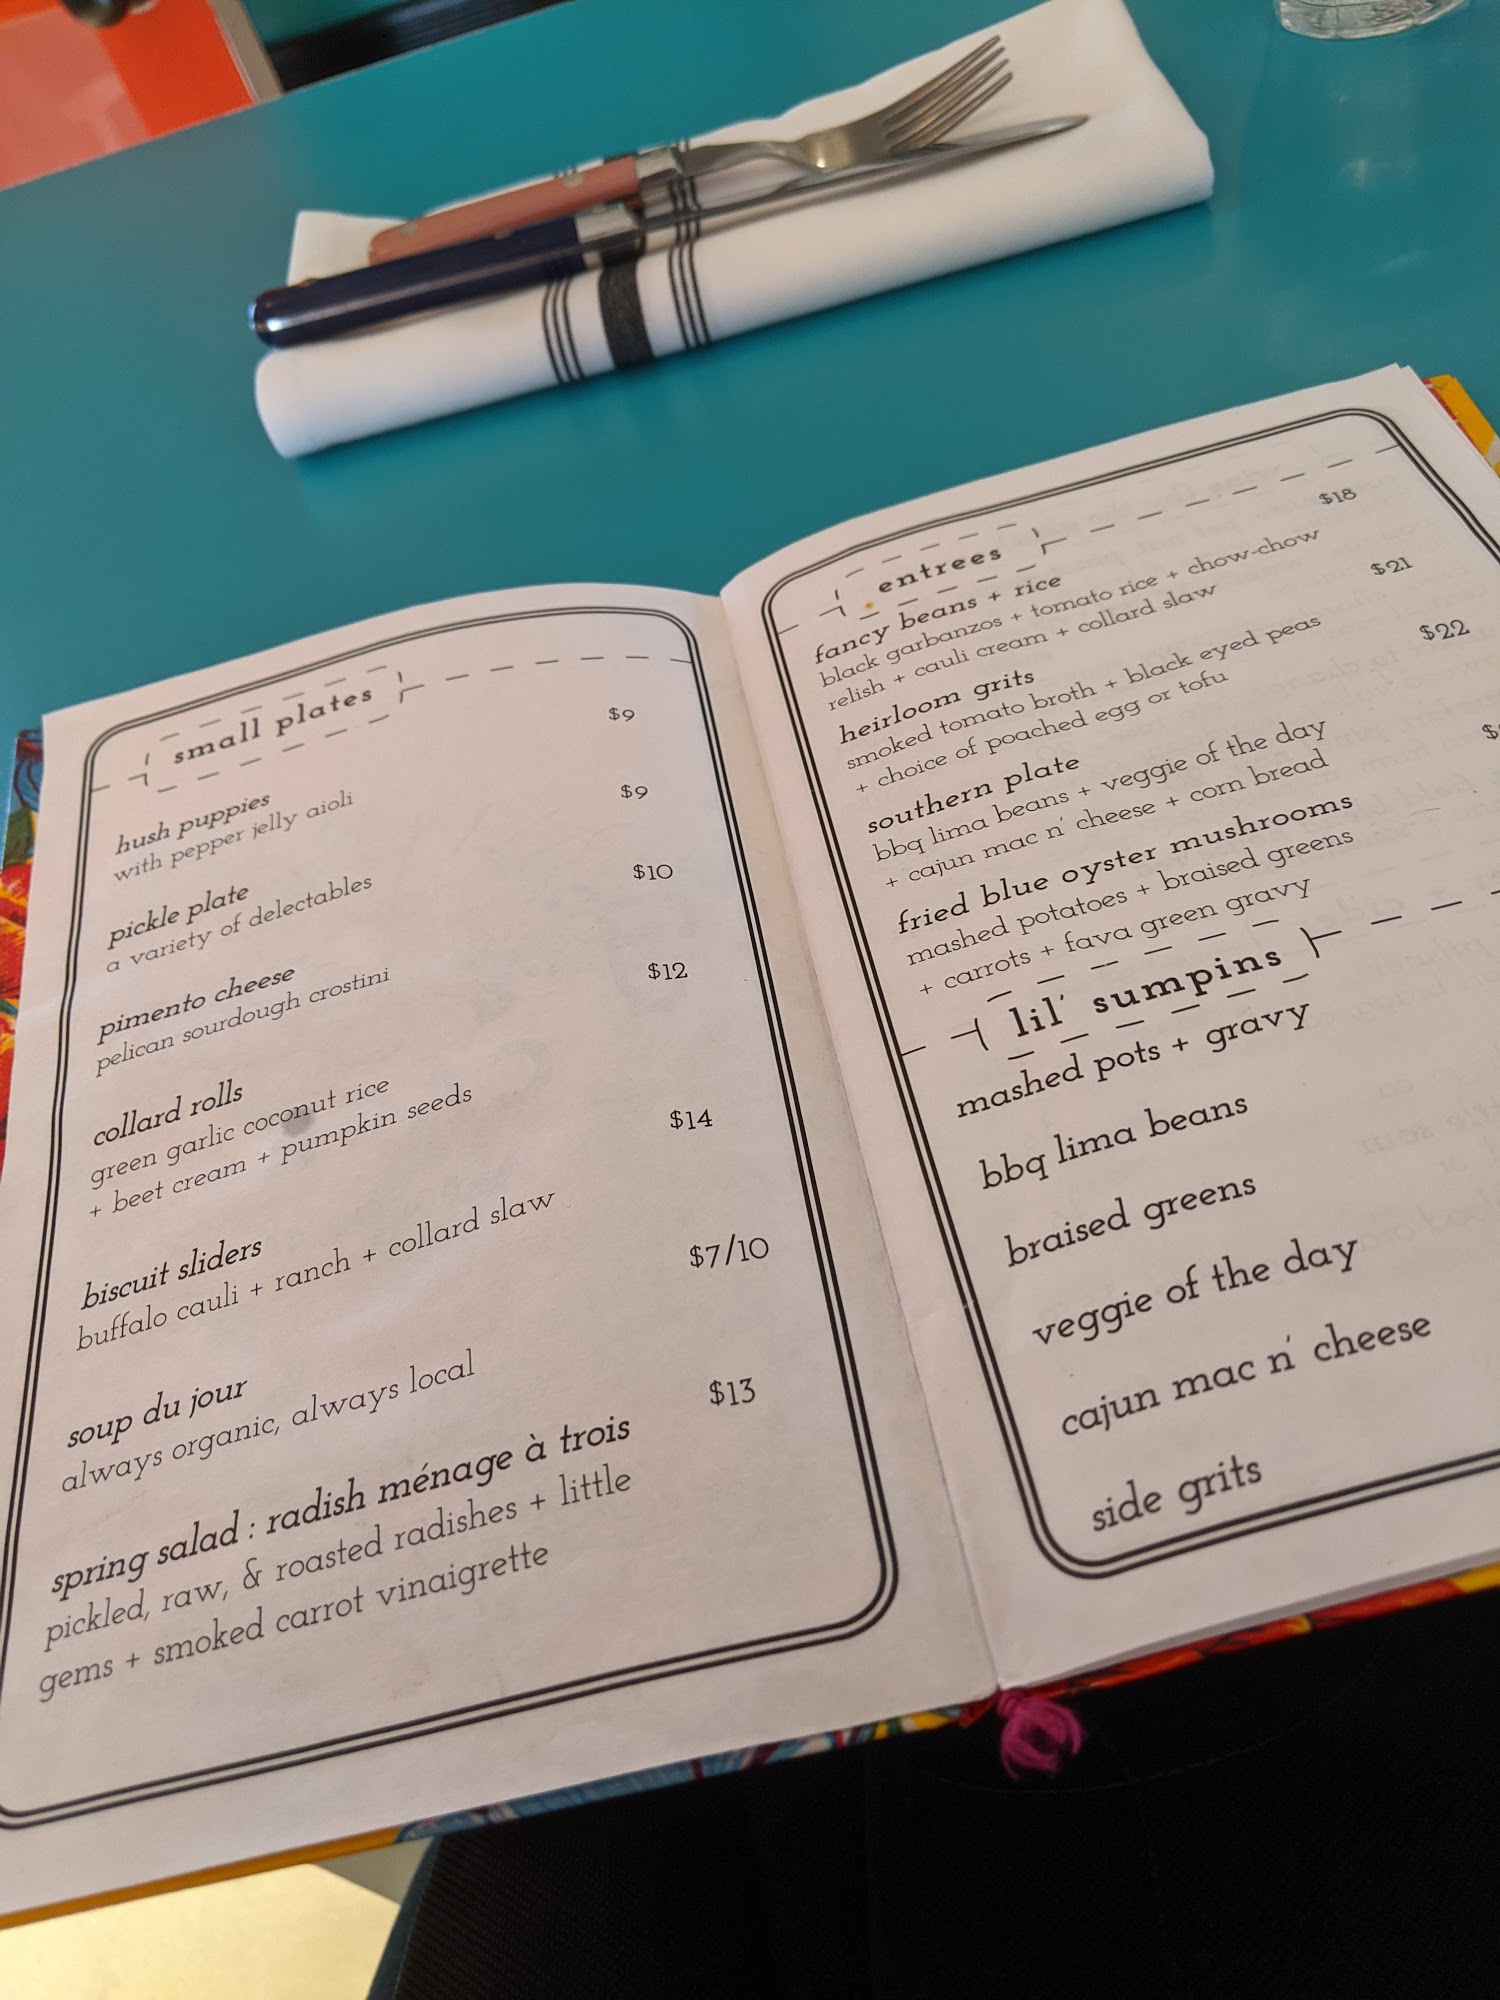 small plates
hush puppies
$9
with pepper jelly aioli
pickle plate
$9
a variety of delectables
pimento cheese
$10
pelican sourdough crostini
collard rolls
$12
green garlic coconut rice
+ beet cream + pumpkin seeds
biscuit sliders
$14
buffalo cauli + ranch + collard slaw
soup du jour
$7/10
always organic, always local
spring salad : radish ménage à trois
$13
pickled, raw, & roasted radishes + little
gems + smoked carrot vinaigrette
entrees
fancy beans + rice
$18
black garbanzos + tomato rice + chow-chow
relish + cauli cream + collard slaw
heirloom grits
$21
smoked tomato broth + black eyed peas
+ choice of poached egg or tofu
southern plate
$22
bbq lima beans + veggie of the day
+ cajun mac n' cheese + corn bread
fried blue oyster mushrooms
mashed potatoes + braised greens
+ carrots + fava green gravy
lil' sumpins
mashed pots + gravy
bbq lima beans
braised greens
veggie of the day
cajun mac n' cheese
side grits